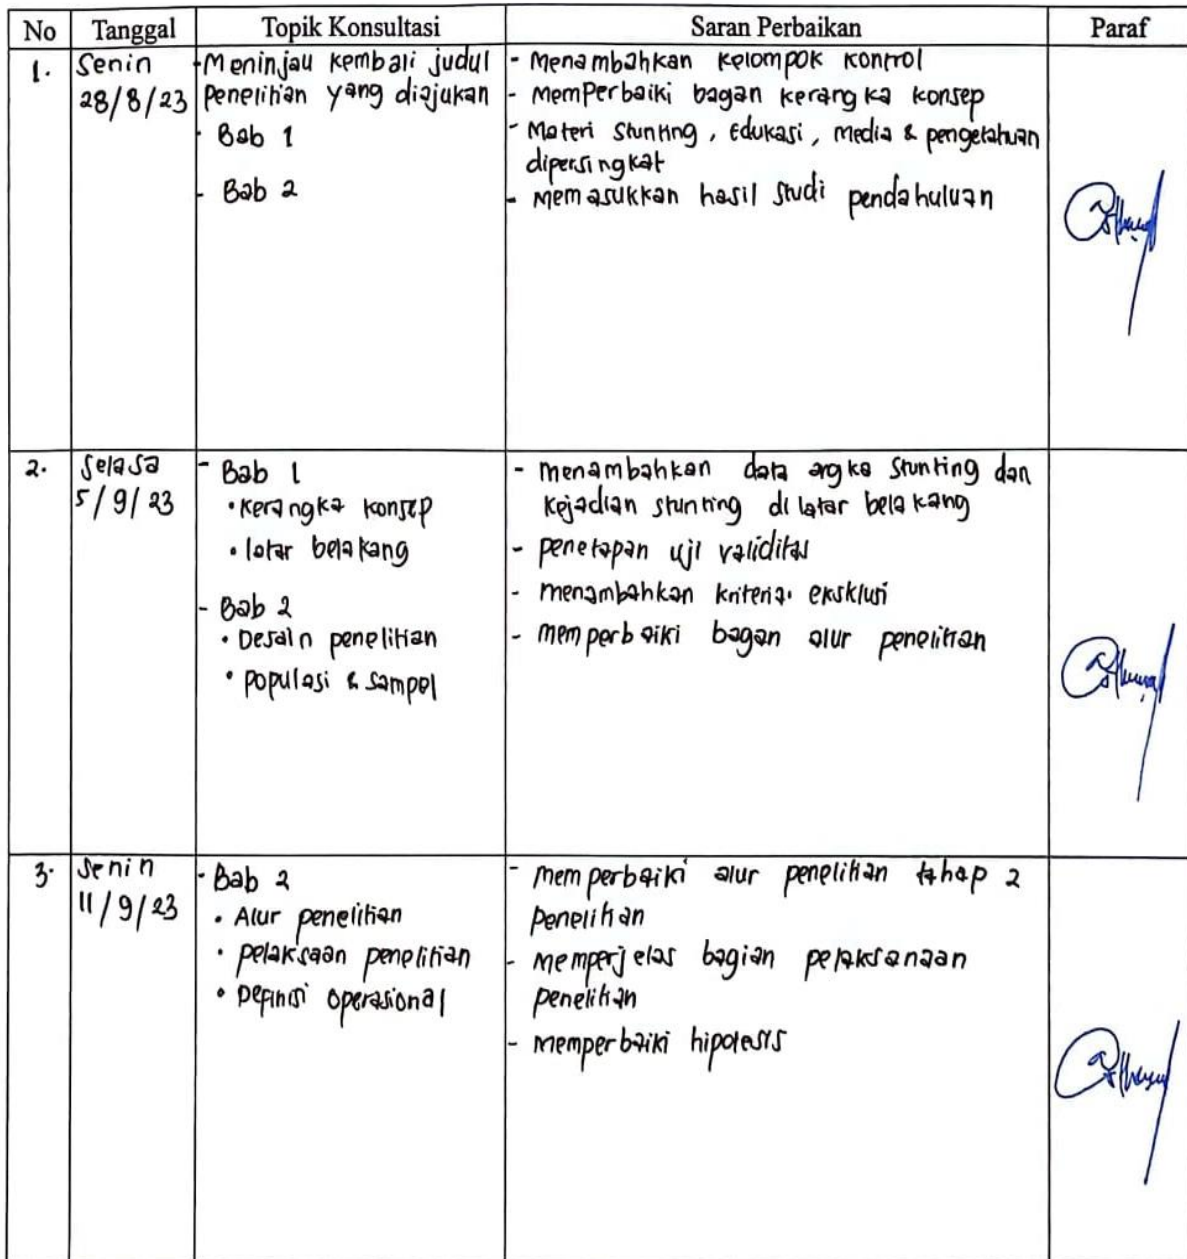 No Tanggal Topik Konsultasi Saran Perbaikan Paraf
1. Senin
28/8/23
- Meninjau kembali judul
penelitian yang diajukan
- Bab 1
- Bab 2
- Menambahkan kelompok kontrol
- memperbaiki bagan kerangka konsep
- Materi Stunting, Edukasi, media & pengetahuan
dipersingkat
- memasukkan hasil studi pendahuluan
2. Selasa
5/9/23
- Bab 1
• kerangka konsep
• latar belakang
- Bab 2
• Desain penelitian
• populasi & sampel
- menambahkan data angka stunting dan
kejadian stunting di latar belakang
- penetapan uji validitas
- menambahkan kriteria eksklusi
- memperbaiki bagan alur penelitian
3. Senin
11/9/23
- Bab 2
• Alur penelitian
• pelaksaan penelitian
• Definisi operasional
- memperbaiki alur penelitian tahap 2
penelitian
- memperjelas bagian pelaksanaan
penelitian
- memperbaiki hipotesis